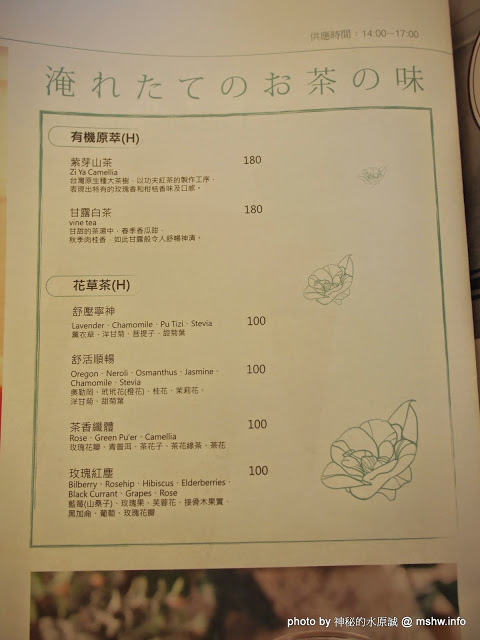 供應時間：14:00~17:00
淹れたてのお茶の味
有機原萃(H)
紫芽山茶 180
Zi Ya Camellia
台灣原生種大茶樹，以功夫紅茶的製作工序，
表現出特有的玫瑰香和柑桔香味及口感。
甘露白茶 180
vine tea
甘甜的茶湯中，春季香瓜甜，
秋季肉桂香，如此甘露般令人舒暢神清。
花草茶(H)
舒壓寧神
Lavender、Chamomile、Pu Tizi、Stevia 100
薰衣草、洋甘菊、菩提子、甜菊葉
舒活順暢
Oregon、Neroli、Osmanthus、Jasmine、 100
Chamomile、Stevia
奧勒岡、玳玳花(橙花)、桂花、茉莉花、
洋甘菊、甜菊葉
茶香纖體 100
Rose、Green Pu'er、Camellia
玫瑰花瓣、青普洱、茶花子、茶花綠茶、茶花
玫瑰紅塵 100
Bilberry、Rosehip、Hibiscus、Elderberries、
Black Currant、Grapes、Rose
藍莓(山桑子)、玫瑰果、芙蓉花、接骨木果實、
黑加侖、葡萄、玫瑰花瓣
photo by 神秘的水原誠 @ mshw.info